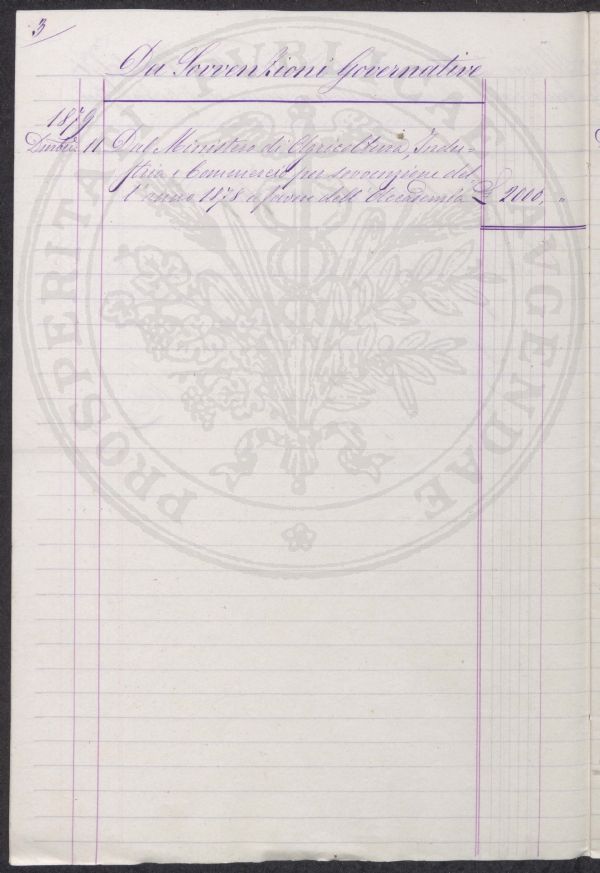 3
Da Sovvenzioni Governative
1879
11 Dal Ministero di Agricoltura, Indu-
stria e Commercio per sovvenzione del
l'anno 1878 a favore dell'Accademia £ 2000, "
PROSPERITATI PUBLICAE AUGENDAE